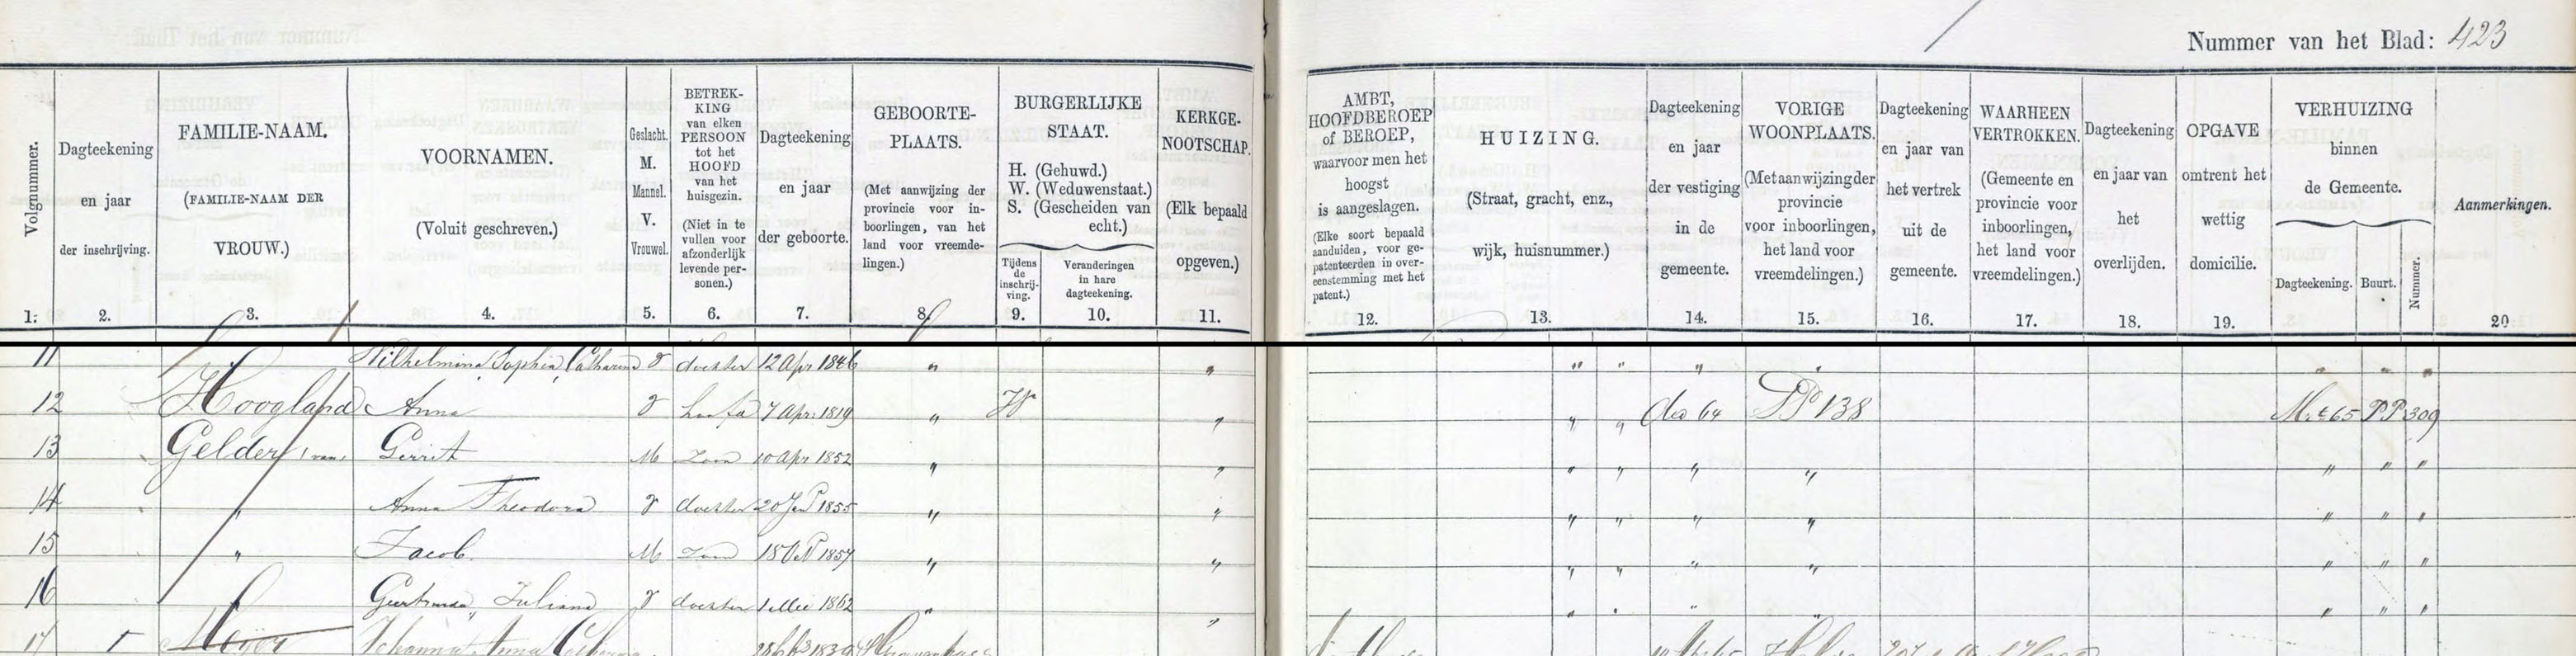 Nummer van het Blad: 423
Volgnummer.
Dagteekening
en jaar
der inschrijving.
FAMILIE-NAAM.
(FAMILIE-NAAM DER
VROUW.)
VOORNAMEN.
(Voluit geschreven.)
Geslacht.
M.
Mannel.
V.
Vrouwel.
BETREK-
KING
van elken
PERSOON
tot het
HOOFD
van het
huisgezin.
(Niet in te
vullen voor
afzonderlijk
levende per-
sonen.)
Dagteekening
en jaar
der geboorte.
GEBOORTE-
PLAATS.
(Met aanwijzing der
provincie voor in-
boorlingen, van het
land voor vreemde-
lingen.)
BURGERLIJKE
STAAT.
H. (Gehuwd.)
W. (Weduwenstaat.)
S. (Gescheiden van
echt.)
Tijdens
de
inschrij-
ving.
Veranderingen
in hare
dagteekening.
KERKGE-
NOOTSCHAP.
(Elk bepaald
opgeven.)
AMBT,
HOOFDBEROEP
of BEROEP,
waarvoor men het
hoogst
is aangeslagen.
(Elke soort bepaald
aanduiden, voor ge-
patenteerden in over-
eenstemming met het
patent.)
HUIZING.
(Straat, gracht, enz.,
wijk, huisnummer.)
Dagteekening
en jaar
der vestiging
in de
gemeente.
VORIGE
WOONPLAATS.
(Met aanwijzing der
provincie
voor inboorlingen,
het land voor
vreemdelingen.)
Dagteekening
en jaar van
het vertrek
uit de
gemeente.
WAARHEEN
VERTROKKEN.
(Gemeente en
provincie voor
inboorlingen,
het land voor
vreemdelingen.)
Dagteekening
en jaar van
het
overlijden.
OPGAVE
omtrent het
wettig
domicilie.
VERHUIZING
binnen
de Gemeente.
Dagteekening. Buurt. Nummer.
Aanmerkingen.
1. 2. 3. 4. 5. 6. 7. 8. 9. 10. 11. 12. 13. 14. 15. 16. 17. 18. 19. 20
11 Wilhelmina Sophia Catharina v dochter 12 Apr 1846 " " " " " " " " "
12 Hoogland Anna v 7 Apr: 1819 " W " " " 64 PP 138 Mrt 65 PP 309
13 Gelder (van) Gerrit M Zoon 10 Apr 1852 " " " " " " " " "
14 " Anna Theodora v dochter 1855 " " " " " " " " "
15 " Jacob M Zoon 1857 " " " " " " " " "
16 Geertruida Juliana v dochter 1 Mei 1862 " " " " " " " " "
17 Meijer Johanna Anna